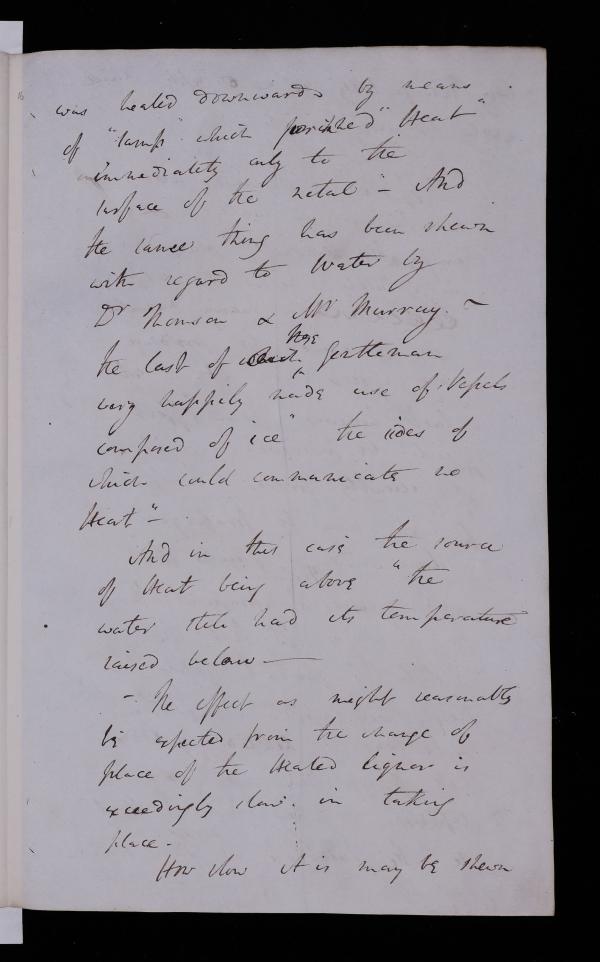 was heated downwards by means
of "lamps" which furnished "Heat"
immediately only to the
surface of the metal" - And
the same thing has been shewn
with regard to Water by
Dr Thomson & Mr Murray. -
the last of which these gentleman
very happily made use of Vessels
composed of ice" the sides of
which could communicate no
Heat" -
And in this case the source
of Heat being above "the
water still had its temperature
raised below -
- The effect as might reasonably
be expected from the change of
place of the Heated liquor is
exceedingly slow. in taking
place -
How slow it is may be shewn